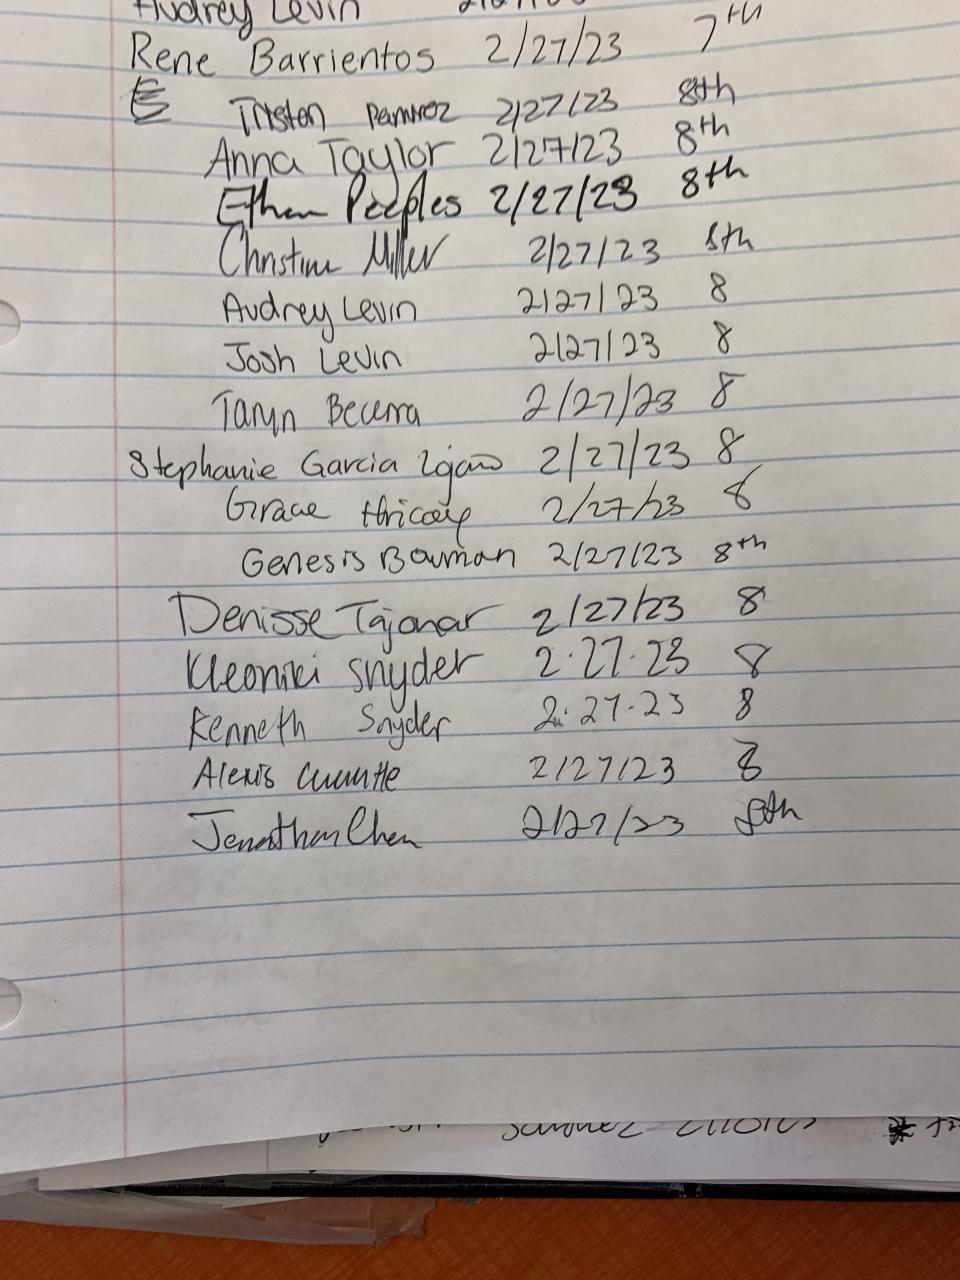 Audrey Levin
Rene Barrientos 2/27/23 7th
Tristen Ramirez 2/27/23 8th
Anna Taylor 2/27/23 8th
Ethan Peeples 2/27/23 8th
Christine Miller 2/27/23 8th
Audrey Levin 2/27/23 8
Josh Levin 2/27/23 8
Taryn Becerra 2/27/23 8
Stephanie Garcia 2/27/23 8
Grace 2/27/23 8
Genesis Bowman 2/27/23 8th
Denisse Tajonar 2/27/23 8
Kleoniki Snyder 2.27.23 8
Kenneth Snyder 2.27.23 8
Alexis 2/27/23 8
Jonathan Chen 2/27/23 8th